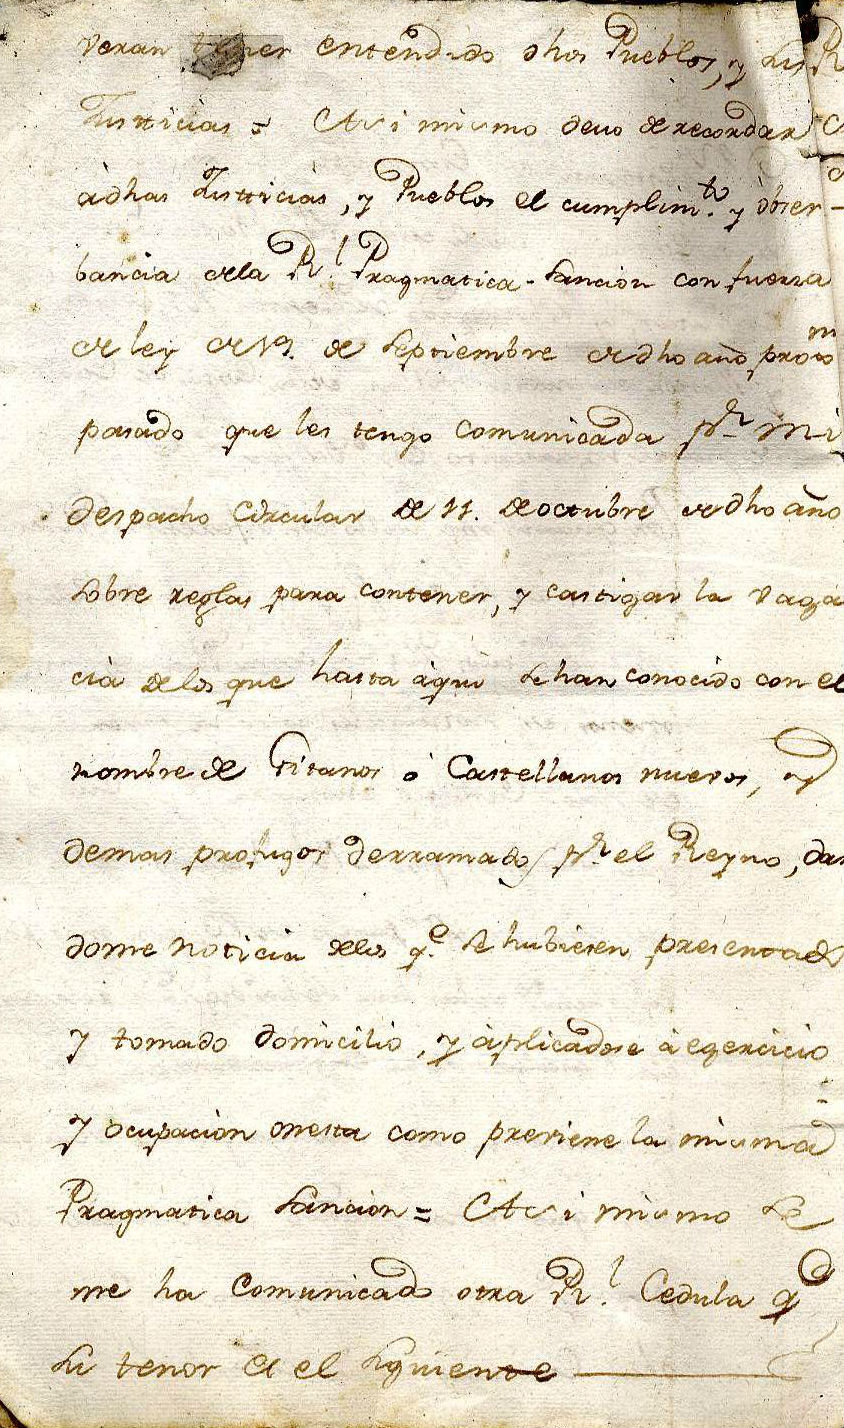 veran tener entendido dhos Pueblos, y sus
Justticias = Asi mismo devo de recordar
à dhas Justticias, y Pueblos el cumplim.to y obser-
bancia de la R.l Pragmatica-Sancion con fuerza
de ley de 19. de Septiembre de dho año, proxmo
pasado que les tengo comunicada pr mi
despacho Circular de 11. de octubre de dho año
sobre reglas para contener, y castigar la vagà
cia de los que hasta àqui se han conocido con el
nombre de Gitanos ò Castellanos nuevos, y
demas profugos derramados pr. el Reyno, dan
dome noticia de los q.e se hubiesen presentado
y tomado domicilio, y àplicadose à egercicio
y ocupacion onesta como previene la misma
Pragmatica Sancion = Asi mismo se
me ha Comunicado otra R.l Cedula qe
su tenor es el siguiente